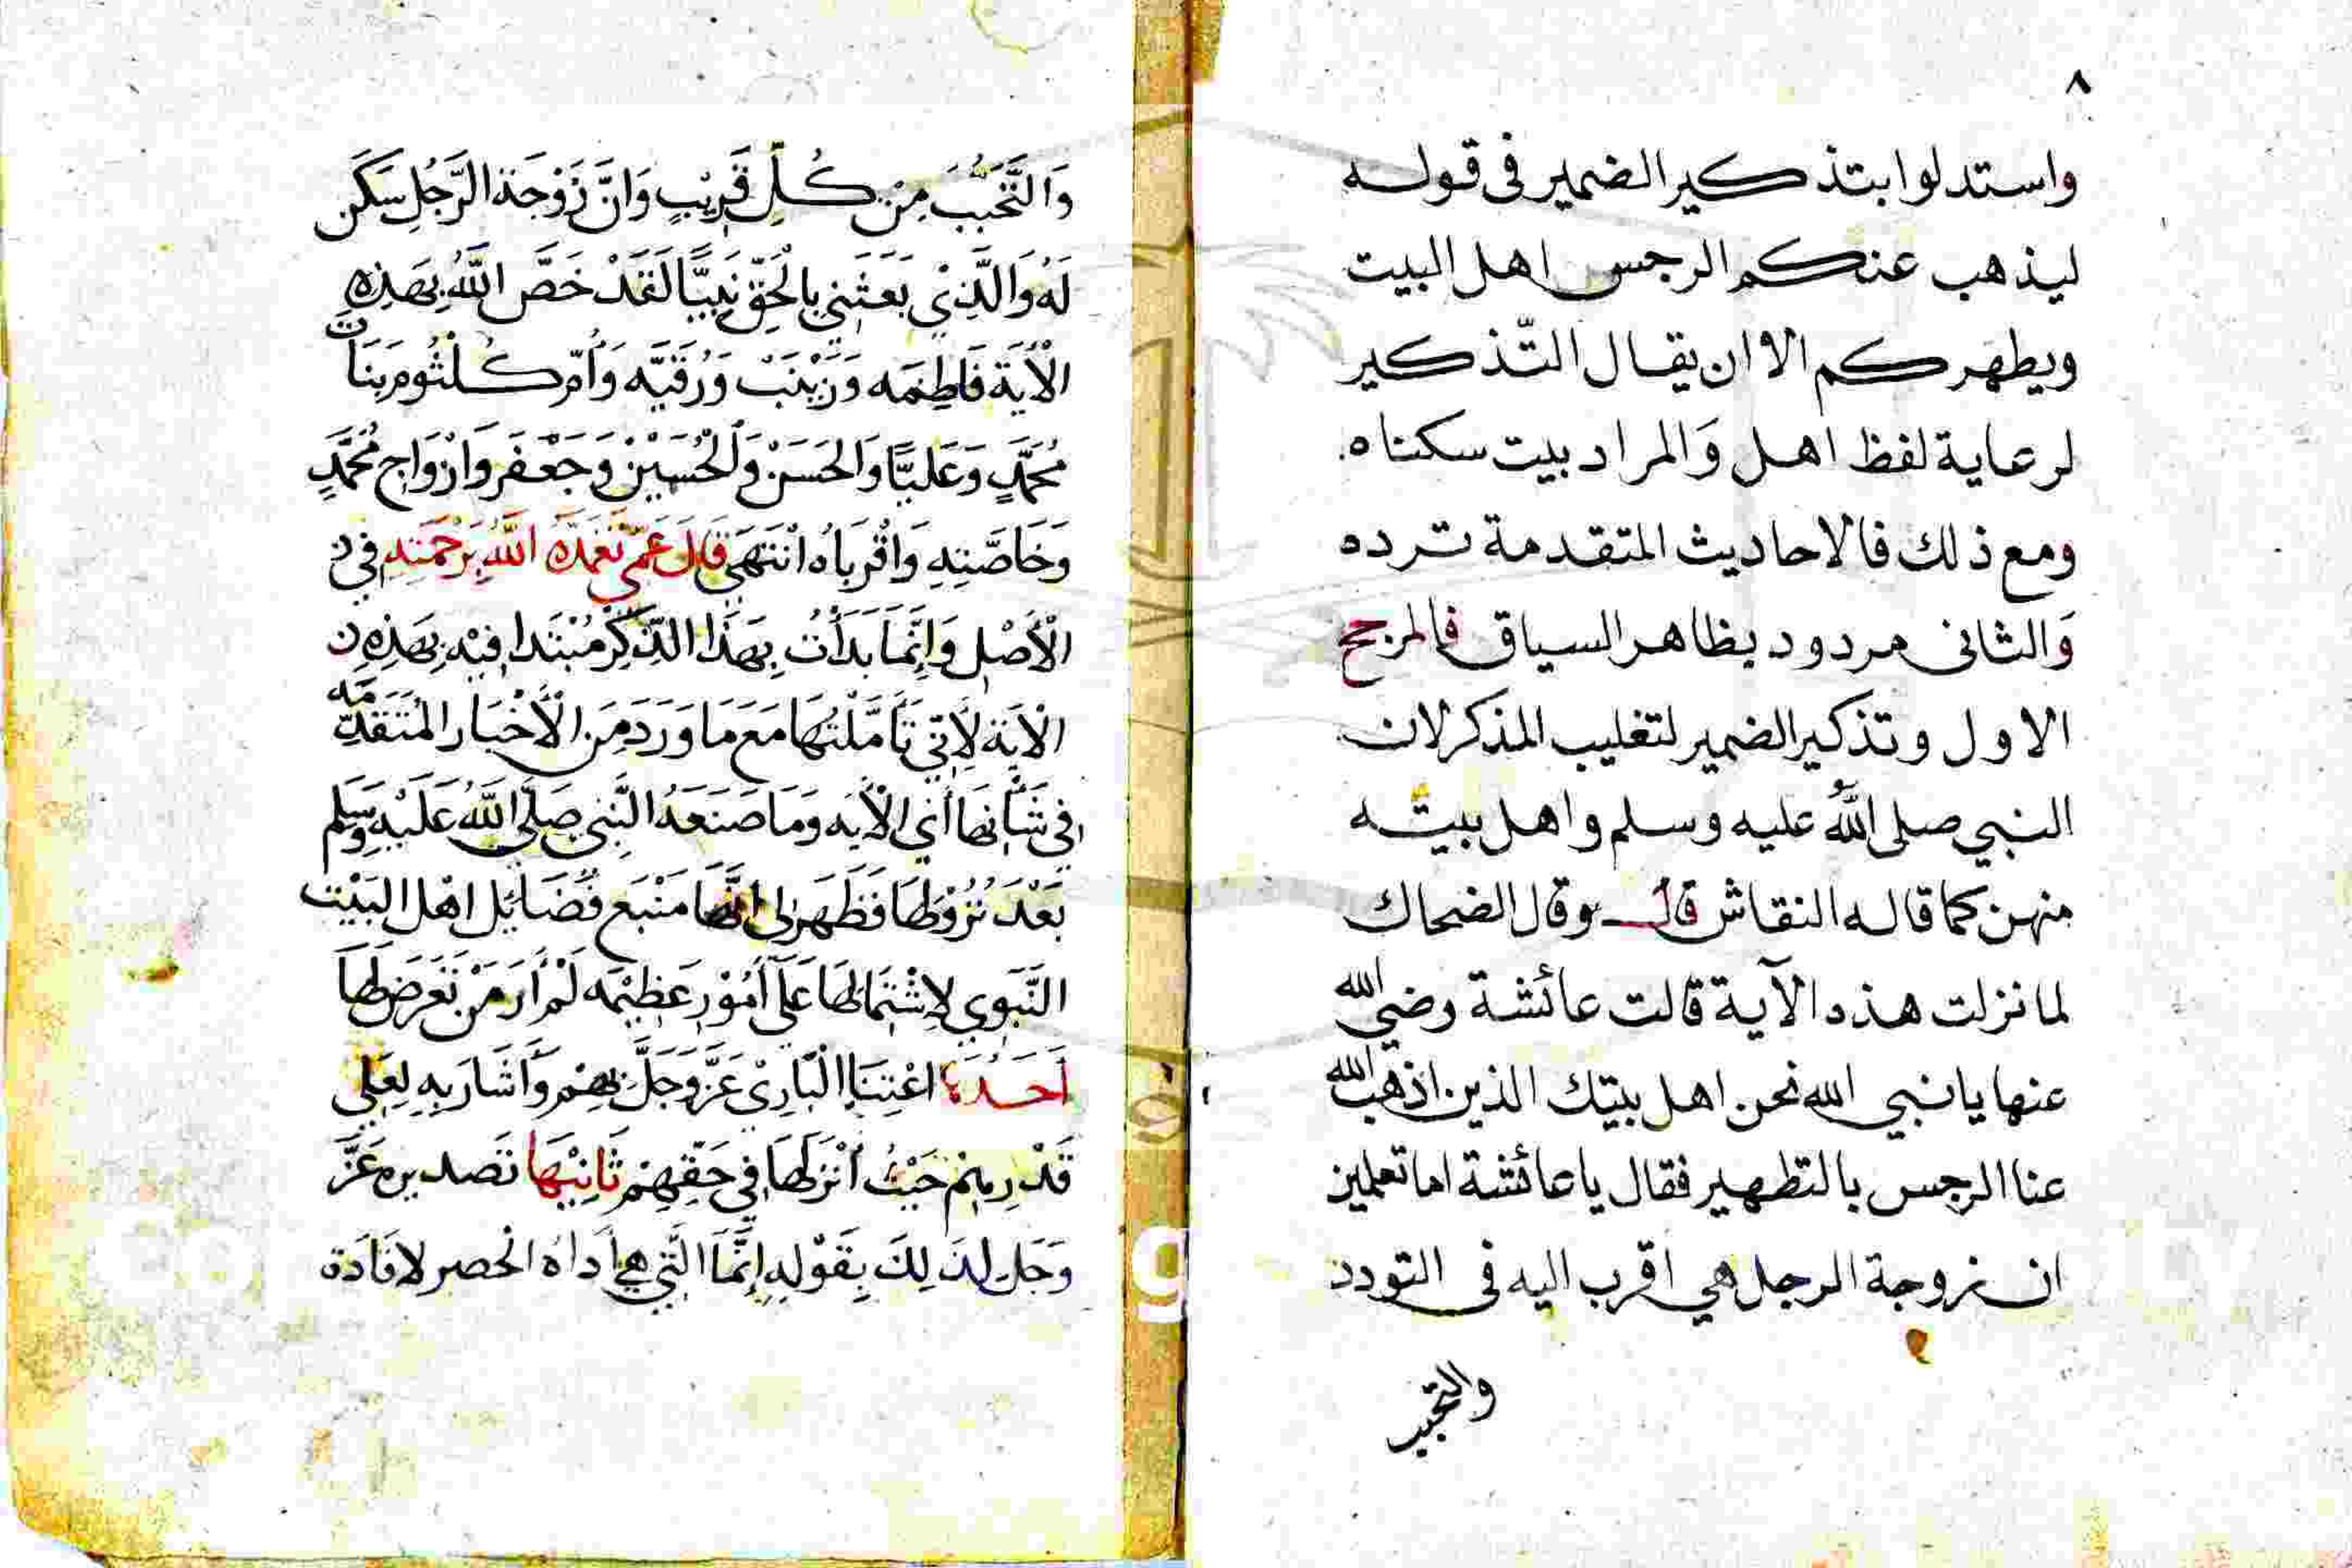 ٨
واستدلوا بتذكير الضمير فى قوله
ليذهب عنكم الرجس اهل البيت
ويطهركم الا ان يقال التّذكير
لرعاية لفظ اهل وَالمراد بيت سكناه
ومع ذلك فالاحاديث المتقدمة ترده
وَالثانى مردود بظاهر السياق فالمرجح
الاول وتذكير الضمير لتغليب المذكر لان
النبي صلى اللّٰه عليه وسلم واهل بيته
منهن كما قاله النقاش قال وقال الضحاك
لما نزلت هذه الآية قالت عائشة رضي الله
عنها يا نبي الله نحن اهل بيتك الذين اذهب الله
عنا الرجس بالتطهير فقال يا عائشة اما تعلمين
ان زوجة الرجل هي اقرب اليه فى التودد
والتحبب
وَالتَّحَبُّبَ مِنْ كُلِّ قَرِيْبٍ وَانَّ زَوْجَة الرَّجُلِ سَكَن
لَهُ وَالَّذِيْ بَعَثَنِي بِالْحَقِّ نَبِيًّا لَقَدْ خَصَّ اللَّهُ بِهَذِهِ
الْأَيَة فَاطِمَه وَزَيْنَبْ وَرُقَيَّه وَأُمّ كُلْثُوم بَنَات
مُحَمَّدٍ وَعَلِيًّا وَالحَسَنْ وَالْحُسَيْنْ وَجَعْفَر وَازْوَاج مُحَمَّدٍ
وَخَاصَّتِهِ وَاقْرِبَاهُ انْتَهَى قَالَ عَمّي تَغَمَّدَهُ اللَّهُ بِرَحْمَتِهِ فِي
الْأَصْلِ وَإِنَّمَا بَدَأْتُ بِهَذَا الذِّكْرِ مُبْتَدا فِيْهِ بِهَذِهِ
الْآيَة لِأَنّي تَأَمَّلْتُهَا مَعَ مَا وَرَدَ مِنَ الْأَخْبَار المُتَقَدِّمَه
فِي شَأْنِهَا أَيْ الْأَيَه وَمَا صَنَعَهُ النَّبِي صَلَّى اللَّهُ عَلَيْهِ وَسَلم
بَعْدَ نُزُوْلِهَا فَظَهَر لِي انَّهَا مَنْبَع فَضَائِل اهْل البَيْت
النَّبَوِي لِاشْتِمَالِهَا عَلَى أُمُوْرٍ عَظِيْمَه لَمْ أَرَ مَنْ تَعَرَّضَ لَهَا
أَحَدهَا اعْتِنَا الْبَارِيْ عَزَّ وَجَلَّ بِهِمْ وَأَشَارَ بِهِ لِعَلِي
قَدْرِهِمْ حَيْثُ أَنْزَلَهَا فِي حَقِّهِمْ ثَانِيْهَا تَصديره عَزَّ
وَجَل لِذَلِكَ بِقَوْلِهِ إِنَّمَا الَّتِي هِيَ أَدَاه الحصر لافَادَة